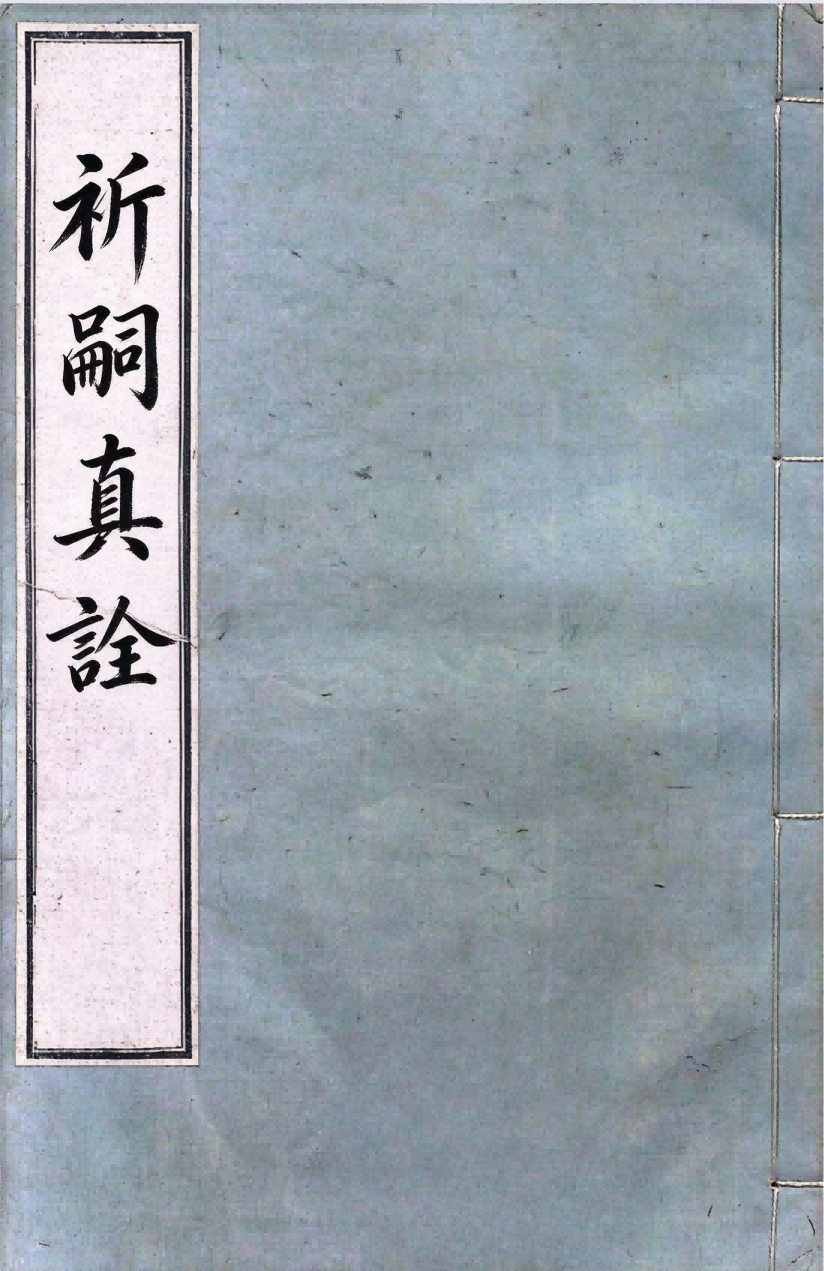 祈嗣真詮